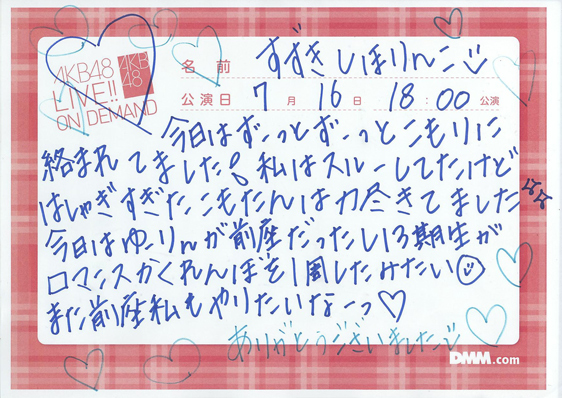 AKB48
LIVE!!
ON DEMAND
AKB
48
名前 すずきしほりんこ
公演日 7月16日 18:00公演
今日はずーっとずーっとこもりに
絡まれてました! 私はスルーしてたけど
はしゃぎすぎたこもたんは力尽きてました
今日はゆーりんが前座だったし13期生が
ロマンスかくれんぼを1周したみたい
また前座私もやりたいなーっ♡
ありがとうございました
DMM.com